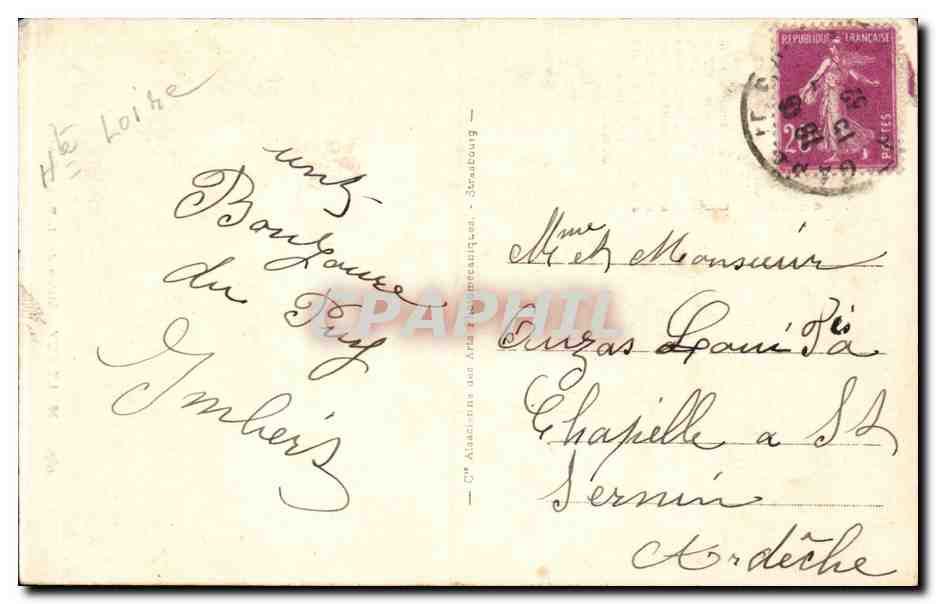 Hte Loire
unb
Bonjoure
du Puy
Imbert
Cie Alsacienne des Arts Photomécaniques. - Strasbourg
REPUBLIQUE FRANÇAISE
POSTES
Mme et Monsieur
Auzas Louis à
Chapelle a St
Sernin
Ardêche
CPAPHIL